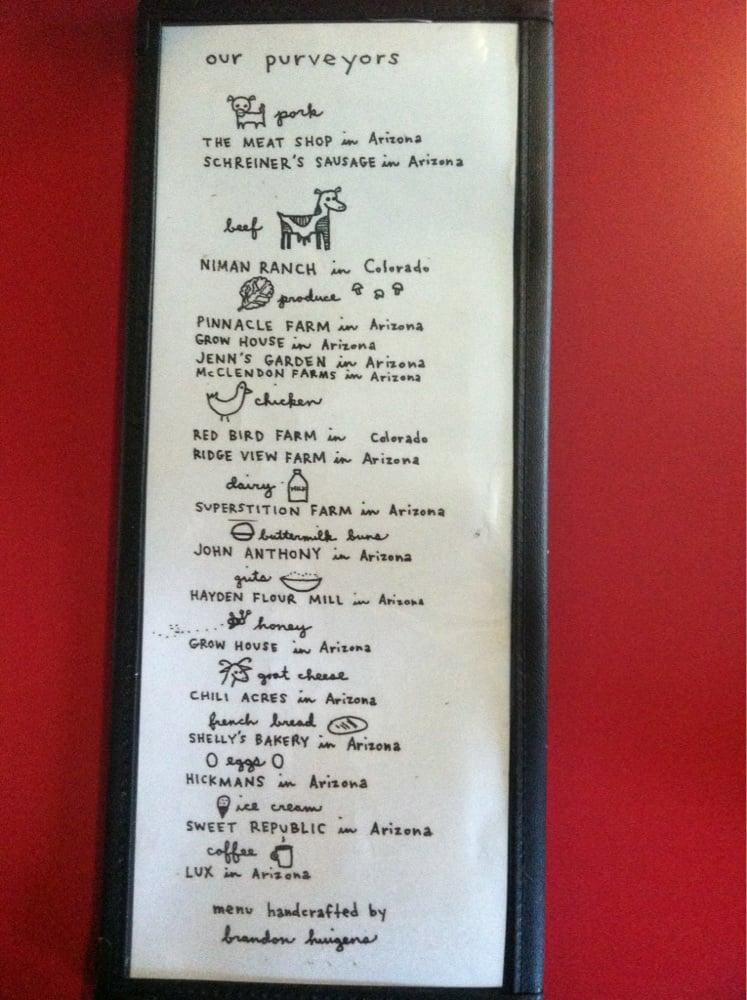 our purveyors
pork
THE MEAT SHOP in Arizona
SCHREINER'S SAUSAGE in Arizona
beef
NIMAN RANCH in Colorado
produce
PINNACLE FARM in Arizona
GROW HOUSE in Arizona
JENN'S GARDEN in Arizona
McCLENDON FARMS in Arizona
chicken
RED BIRD FARM in Colorado
RIDGE VIEW FARM in Arizona
dairy MILK
SUPERSTITION FARM in Arizona
buttermilk buns
JOHN ANTHONY in Arizona
grits
HAYDEN FLOUR MILL in Arizona
honey
GROW HOUSE in Arizona
goat cheese
CHILI ACRES in Arizona
french bread
SHELLY'S BAKERY in Arizona
eggs
HICKMANS in Arizona
ice cream
SWEET REPUBLIC in Arizona
coffee
LUX in Arizona
menu handcrafted by
brandon huigens